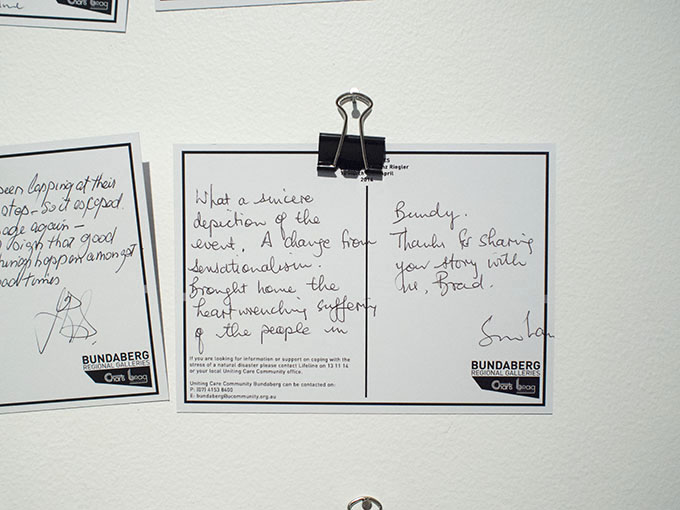 een lapping at their
so it escaped
again –
that good
happen amongst
times
BUNDABERG
REGIONAL GALLERIES
Riegler
April
What a sincere
depiction of the
event. A change from
sensationalism.
Brought home the
heart wrenching suffering
of the people in
If you are looking for information or support on coping with the
stress of a natural disaster please contact Lifeline on 13 11 14
or your local Uniting Care Community office.
Uniting Care Community Bundaberg can be contacted on:
P: (07) 4153 8400
E: bundaberg@uccommunity.org.au
Bundy.
Thanks for sharing
your story with
us, Brad.
BUNDABERG
REGIONAL GALLERIES